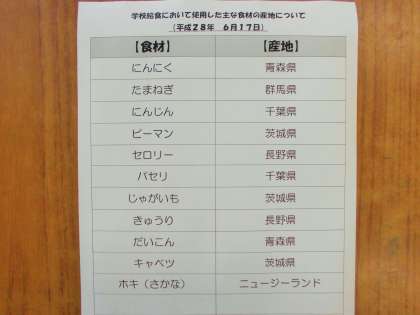 学校給食において使用した主な食材の産地について
(平成28年 6月17日)
【食材】 【産地】
にんにく 青森県
たまねぎ 群馬県
にんじん 千葉県
ピーマン 茨城県
セロリー 長野県
パセリ 千葉県
じゃがいも 茨城県
きゅうり 長野県
だいこん 青森県
キャベツ 茨城県
ホキ（さかな） ニュージーランド